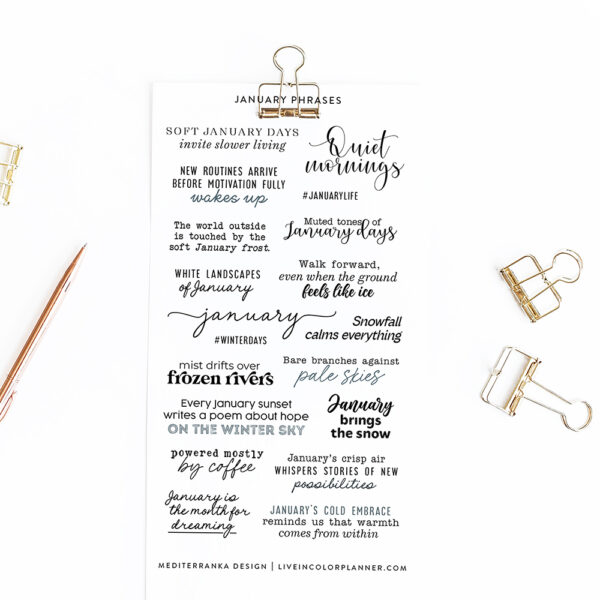 JANUARY PHRASES
SOFT JANUARY DAYS
invite slower living
Quiet
mornings
NEW ROUTINES ARRIVE
BEFORE MOTIVATION FULLY
wakes up
#JANUARYLIFE
The world outside
is touched by the
soft January frost.
Muted tones of
January days
WHITE LANDSCAPES
of January
Walk forward,
even when the ground
feels like ice
january
#WINTERDAYS
Snowfall
calms everything
mist drifts over
frozen rivers
Bare branches against
pale skies
Every January sunset
writes a poem about hope
ON THE WINTER SKY
January
brings
the snow
powered mostly
by coffee
January's crisp air
WHISPERS STORIES OF NEW
possibilities
January is
the month for
dreaming
JANUARY'S COLD EMBRACE
reminds us that warmth
comes from within
MEDITERRANKA DESIGN | LIVEINCOLORPLANNER.COM